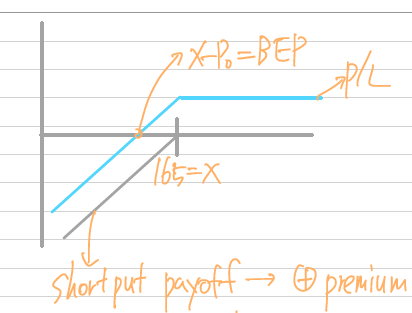 X-P₀=BEP
P/L
165=X
short put payoff → ⊕ premium